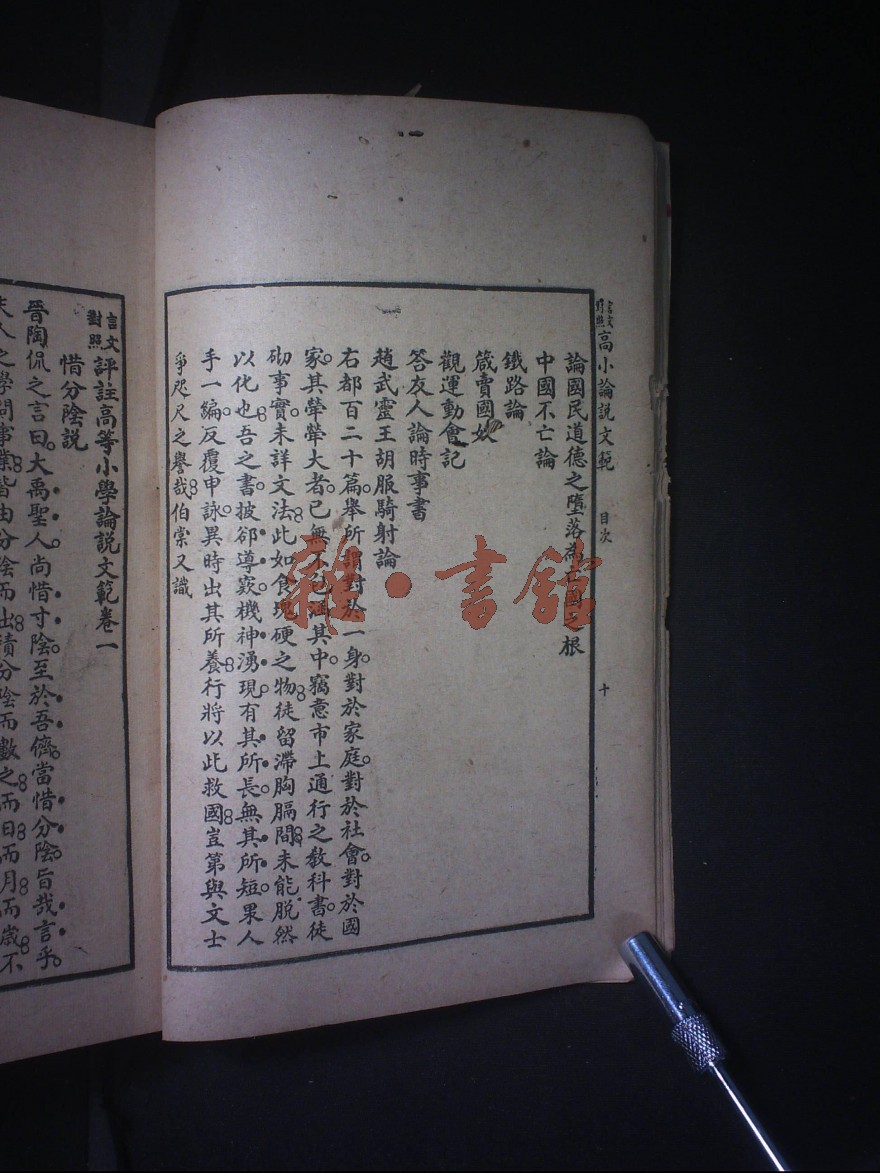 言文對照高小論説文範 目次 十
論國民道德之墮落為亡國之根
中國不亡論
鐵路論
箴賣國奴
觀運動會記
答友人論時事書
趙武靈王胡服騎射論
右都百二十篇。舉所謂對於一身。對於家庭。對於社會。對於國
家。其犖犖大者。已無不包涵其中。竊意市上通行之教科書。徒
砌事實。未詳文法。此如食塊硬之物。徒留滯胸膈間。未能脱然
以化也。吾之書。披郤導窾。機神湧現。有其所長。無其所短。果人
手一編。反覆申詠。異時出其所養。行將以此救國。豈第與文士
爭咫尺之譽哉。伯崇又識
雜·書館
言文對照評註高等小學論説文範卷一
惜分陰説
晉陶侃之言曰。大禹聖人。尚惜寸陰。至於吾儕。當惜分陰。旨哉言乎。
夫人之學問事業。皆由分陰而出。積分陰而數之。而日。而月。而歲。不